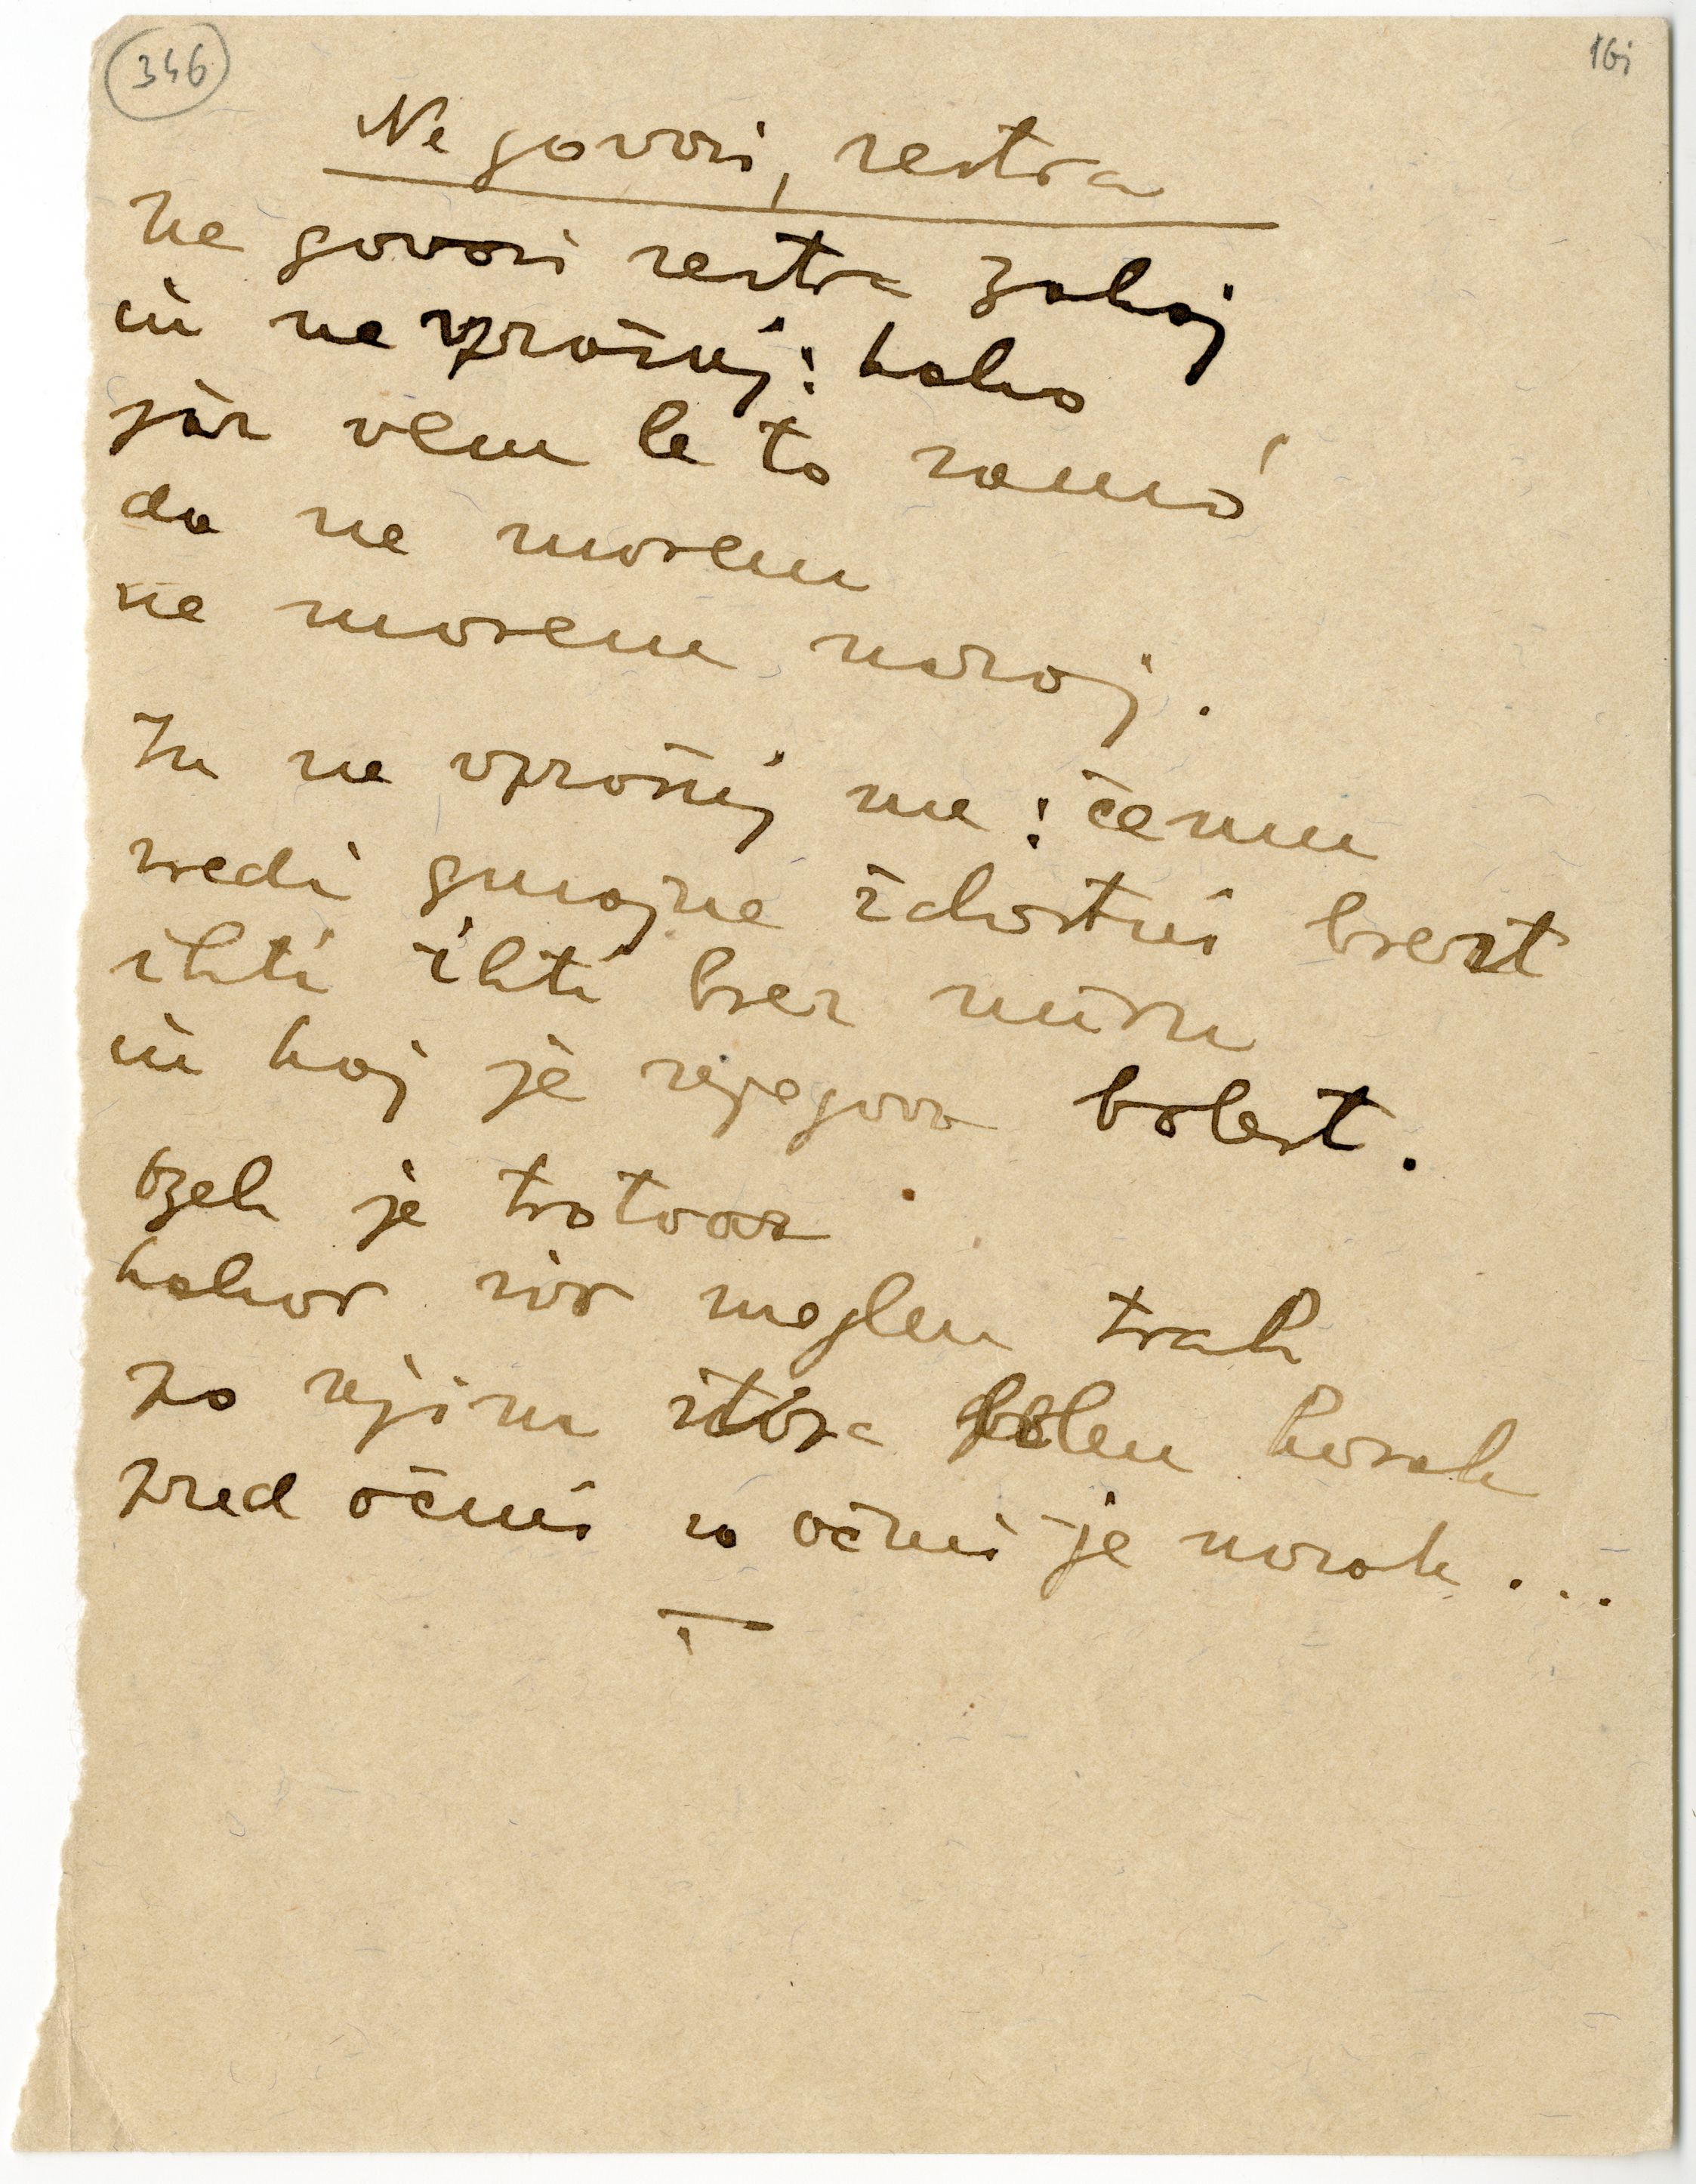 346
Ne govori, sestra
Ne govori sestra zakaj
in ne vprašuj: kako
jaz vem le to samó
da ne morem
ne morem nazaj.
In ne vprašuj me: čemu
sredi gmajne brest
ihti ihti brez miru
in kaj je njegova bolest.
Ozek je trotoar
kakor siv meglen trak
po njim bolen korak
pred očmi za očmi je mrak...